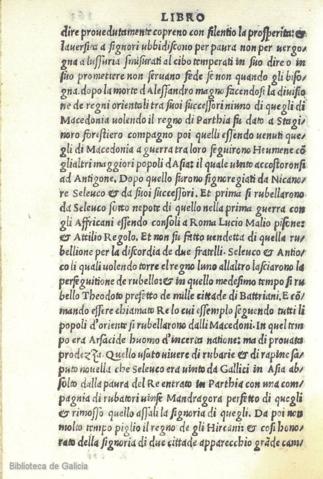 LIBRO
dire provedutamente copreno con silentio la prosperita: &
laversita a signori ubbidiscono per paura non per vergo
gna a lussuria smisurati al cibo temperati in suo dire o in
suo promettere non servano fede se non quando gli biso
gna. dopo la morte d'Alessandro magno facendosi la divisio
ne de regni orientali tra suoi successori niuno di quegli di
Macedonia volendo il regno di Parthia fu dato a Stagi
noro forestiero compagno poi quelli essendo venuti que
gli di Macedonia a guerra tra loro seguirono Heumene cõ
gl'altri maggiori popoli d'Asia: il quale vinto accostoronsi
ad Antigone. Dopo quello furono signoregiati da Nicano
re Seleuco & da suoi successori. Et prima si rubellarono
da Seleuco sotto nepote di quello nella prima guerra con
gli Affricani essendo consoli a Roma Lucio Malio pisone:
& Attilio Regolo. Et non fu fatto vendetta di quella ru
bellione per la discordia de due fratelli. Seleuco & Antio
co li quali volendo torre el regno luno allaltro lasciarono la
perseguitione de rubello: & in quello medesimo tempo si ru
bello Theodoto prefetto de mille cittade di Battriani. E cõ
mando essere chiamato Re lo cui essemplo seguendo tutti li
popoli d'oriente si rubellarono dalli Macedoni. In quel tem
po era Arsacide huomo d'incerta natione: ma di provata
prodezza. Quello usato vivere di rubarie & di rapine sa-
puto novella che Seleuco era vinto da Gallici in Asia ab
solto dalla paura del Re entrato in Parthia con una com
pagnia di rubatori vinse Mandragora perfetto di quegli
& rimosso quello assali la signoria di quegli. Da poi non
molto tempo piglio il regno de gli Hircani: & cosi hono
rato della signoria di due cittade apparecchio grãde cam
Biblioteca de Galicia